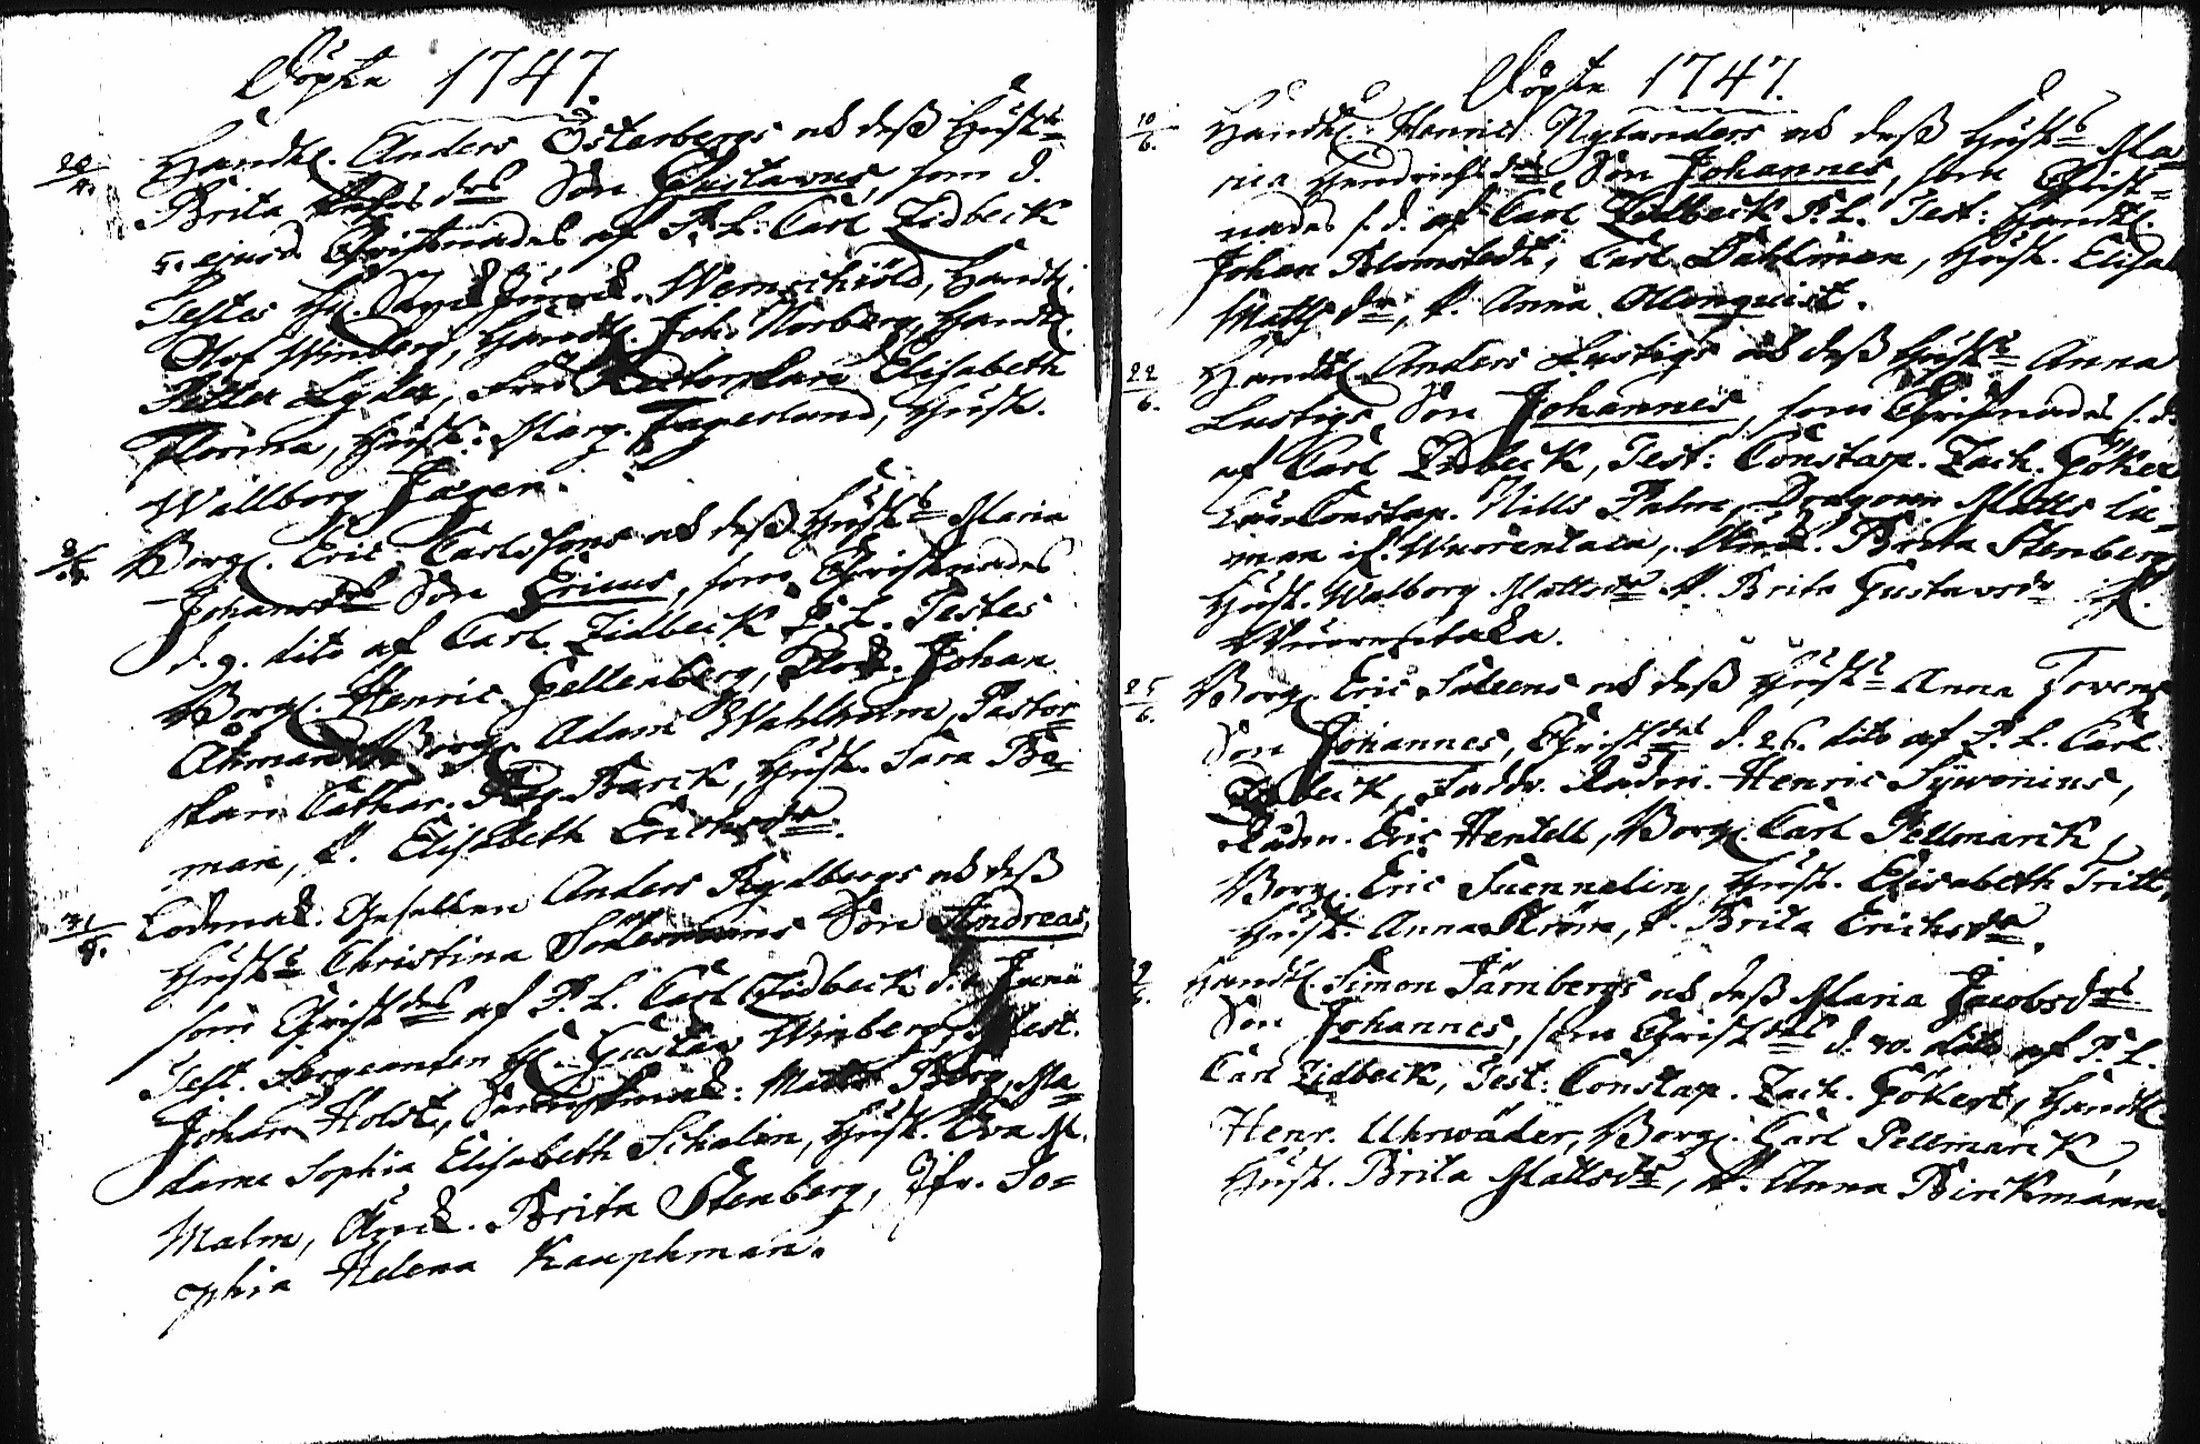 Döpte 1747.
20/4. Handl. Anders Österbergs ock deß Hust:s
Brita drs Son Gustavus, som d.
5. ejusd. Christnades af P. L. Carl Lidbeck
Testes H. Wernschiöld, Handl.
Olof Winberg, Handl. Joh. Norberg, Handl.
Petter Lyder, Fru Elisabeth
Florina, Hust: Marg. Fagerlund, Hust.
Wallborg Fagen.
Borg. Eric Carlssons ock deß Hust:s Maria
Johansdrs Son Ericus, som Christnades
d. 9. dito af Carl Lidbeck P. L. Testes
Borg. Henric Gellenberg, Johan
Åkman, Borg. Adam Wahlman, Pastor=
skan Cathar. Barck, Hust. Sara Bo=
man, P. Elisabeth Erichsdr.
31/5. Lodmak. Gesellen Anders Rydbergs ock deß
Hust:s Christina Son Andreas,
som Christdes af P. L. Carl Lidbeck d. Junii
Test. Sergeanten H. Gustav Winberg,
Johan Holst, Matts Borg, Ma=
dame Sophia Elisabeth Schalin, Hust. Eva M.
Malm, Brita Stenberg, Jfr. So=
phia Helena Kauphman.
Döpte 1747.
10/6. Handl. Henric Nylanders ock deß Hust:s Ma=
ria Hendrichsdrs Son Johannes, som Christ=
nades s. d. af Carl Lidbeck P. L. Test: Handl.
Johan Blomstedt, Carl Dahlman, Hust. Elisab
Mattsdr, P. Anna Ollonquist.
22/6. Handl. Anders Lustigs ock deß Hust:s Anna
Lustigs Son Johannes, som Christnades s. d.
af Carl Lidbeck, Test: Constap. Zach. Göker
Constap. Nills Palm, Dragoun Matts Lu=
man if. Wuorentaca, Brita Stenberg
Hust. Walborg Mattsdr P. Brita Gustavsdr if.
Wuorentaka.
25/6. Borg. Eric Saleens ock deß Hust:s Anna Forens
Son Johannes, Christdes d. 26. dito af P. L. Carl
Lidbeck, Faddr. Rådm. Henric Sywonius,
Rådm. Eric Hentell, Borg. Carl Pellmarck,
Borg. Eric Suennelin, Hust. Elisabeth Tritt,
Hust. Anna Ström, P. Brita Erichsdr.
Handl. Simon Järnbergs ock deß Maria Jacobsdrs
Son Johannes, som Christdes d. 30. dito af P. L.
Carl Lidbeck, Test: Constap. Zach. Gökert, Handl.
Henr. Uhrwäder, Borg. Carl Pellmarck,
Hust. Brita Mattsdr, P. Anna Birckmann.